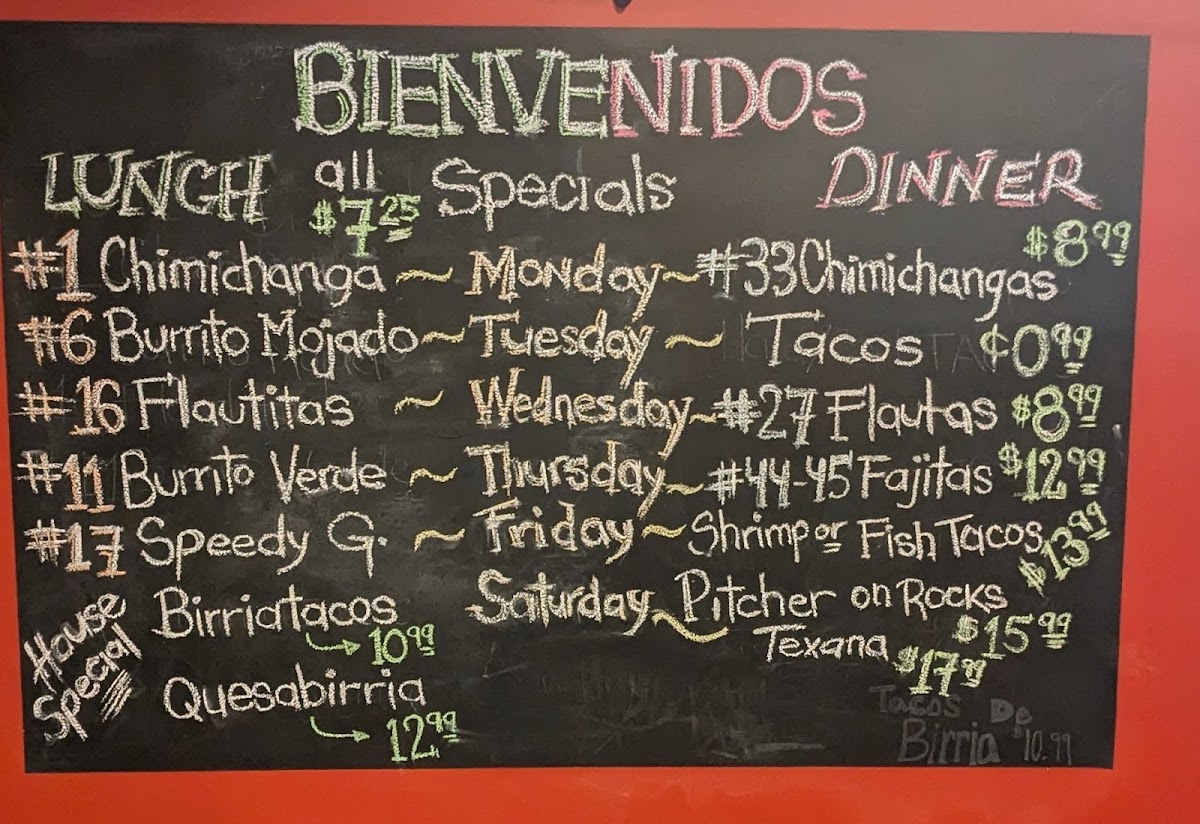 BIENVENIDOS
LUNCH all $7.25 Specials DINNER
$8.99
#1 Chimichanga ~ Monday ~ #33 Chimichangas
#6 Burrito Mojado ~ Tuesday ~ Tacos ¢0.99
#16 Flautitas ~ Wednesday ~ #27 Flautas $8.99
#11 Burrito Verde ~ Thursday ~ #44-45 Fajitas $12.99
#17 Speedy G. ~ Friday ~ Shrimp or Fish Tacos $13.99
House Special
Birriatacos
→ 10.99
Quesabirria
→ 12.99
Saturday ~ Pitcher on Rocks
$15.99
Texana $17.99
Tacos De
Birria $10.99